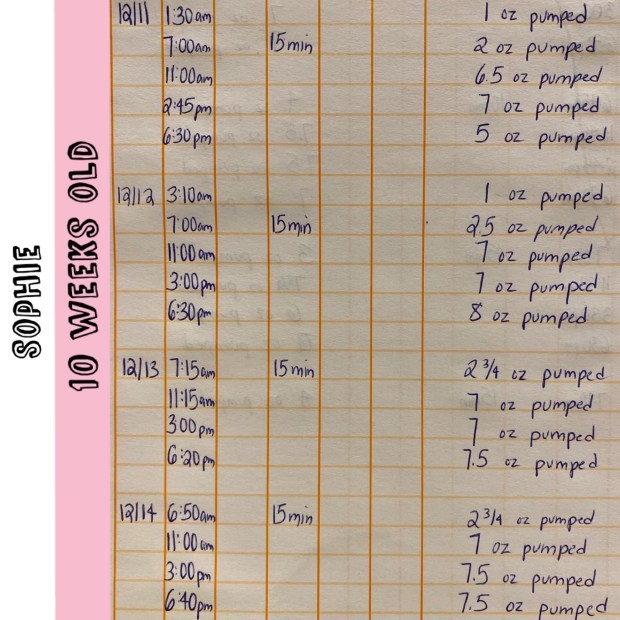 SOPHIE
10 WEEKS OLD
12/11 1:30am 1 oz pumped
7:00am 15min 2 oz pumped
11:00am 6.5 oz pumped
2:45pm 7 oz pumped
6:30pm 5 oz pumped
12/12 3:10am 1 oz pumped
7:00am 15min 2.5 oz pumped
11:00am 7 oz pumped
3:00pm 7 oz pumped
6:30pm 8 oz pumped
12/13 7:15am 15min 2 3/4 oz pumped
11:15am 7 oz pumped
300pm 7 oz pumped
6:20pm 7.5 oz pumped
12/14 6:50am 15min 2 3/4 oz pumped
11:00am 7 oz pumped
3:00pm 7.5 oz pumped
6:40pm 7.5 oz pumped